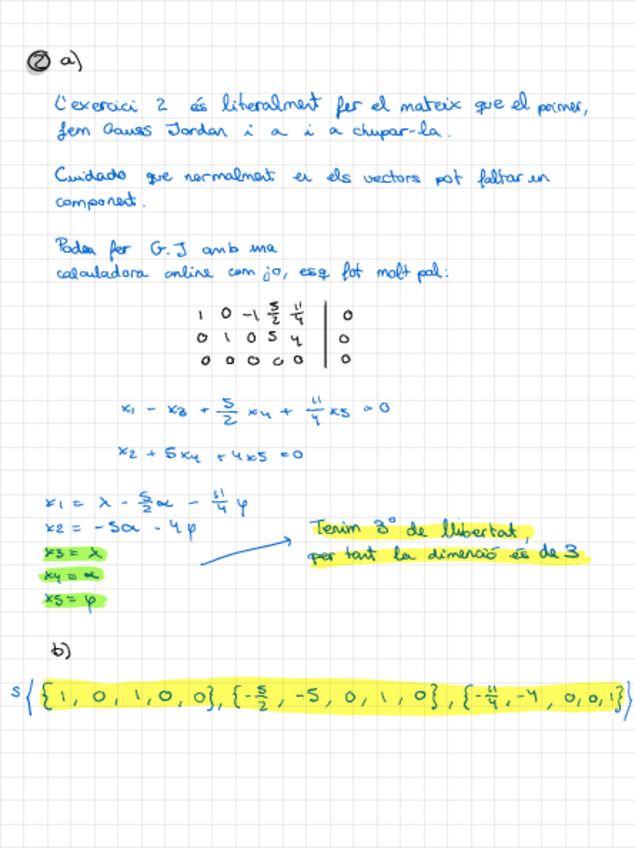 ② a)
L'exercici 2 és literalment fer el mateix que el primer,
fem Gauss Jordan i a i a chupar-la.
Cuidado que normalment en els vectors pot faltar un
component.
Podeu fer G.J amb una
calculadora online com jo, esq fot molt pal:
1 0 -1 5/2 11/4 | 0
0 1 0 5 4 | 0
0 0 0 0 0 | 0
x1 - x3 + 5/2 x4 + 11/4 x5 = 0
x2 + 5x4 + 4x5 = 0
x1 = λ - 5/2 α - 11/4 φ
x2 = -5α - 4φ
x3 = λ
x4 = α
x5 = φ
Tenim 3º de llibertat,
per tant la dimenció és de 3
b)
S⟨{1, 0, 1, 0, 0}, {-5/2, -5, 0, 1, 0}, {-11/4, -4, 0, 0, 1}⟩